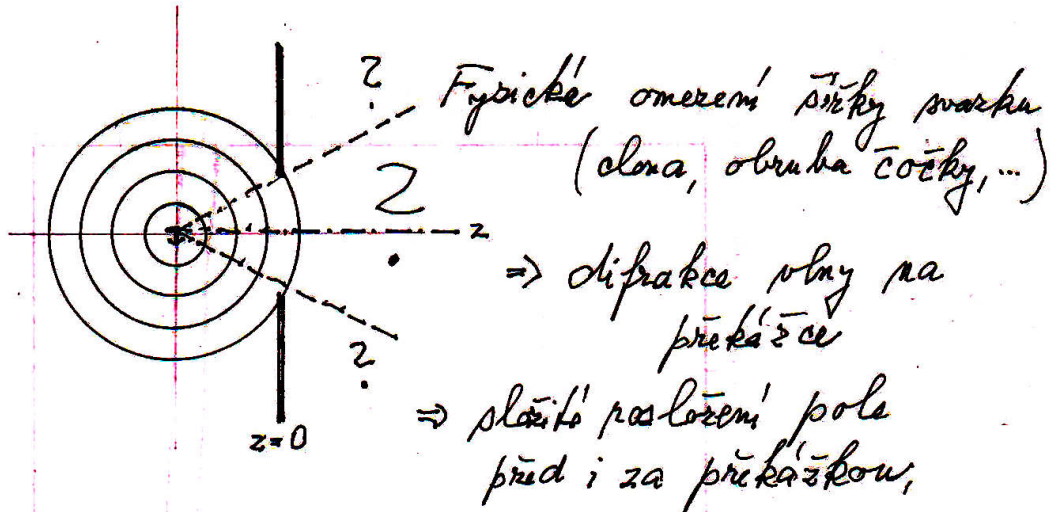 ?
Fyzické omezení šířky svazku
(clona, obruba čočky, ...)
?
z
⇒ difrakce vlny na
překážce
?
z=0
⇒ složité rozložení pole
před i za překážkou,